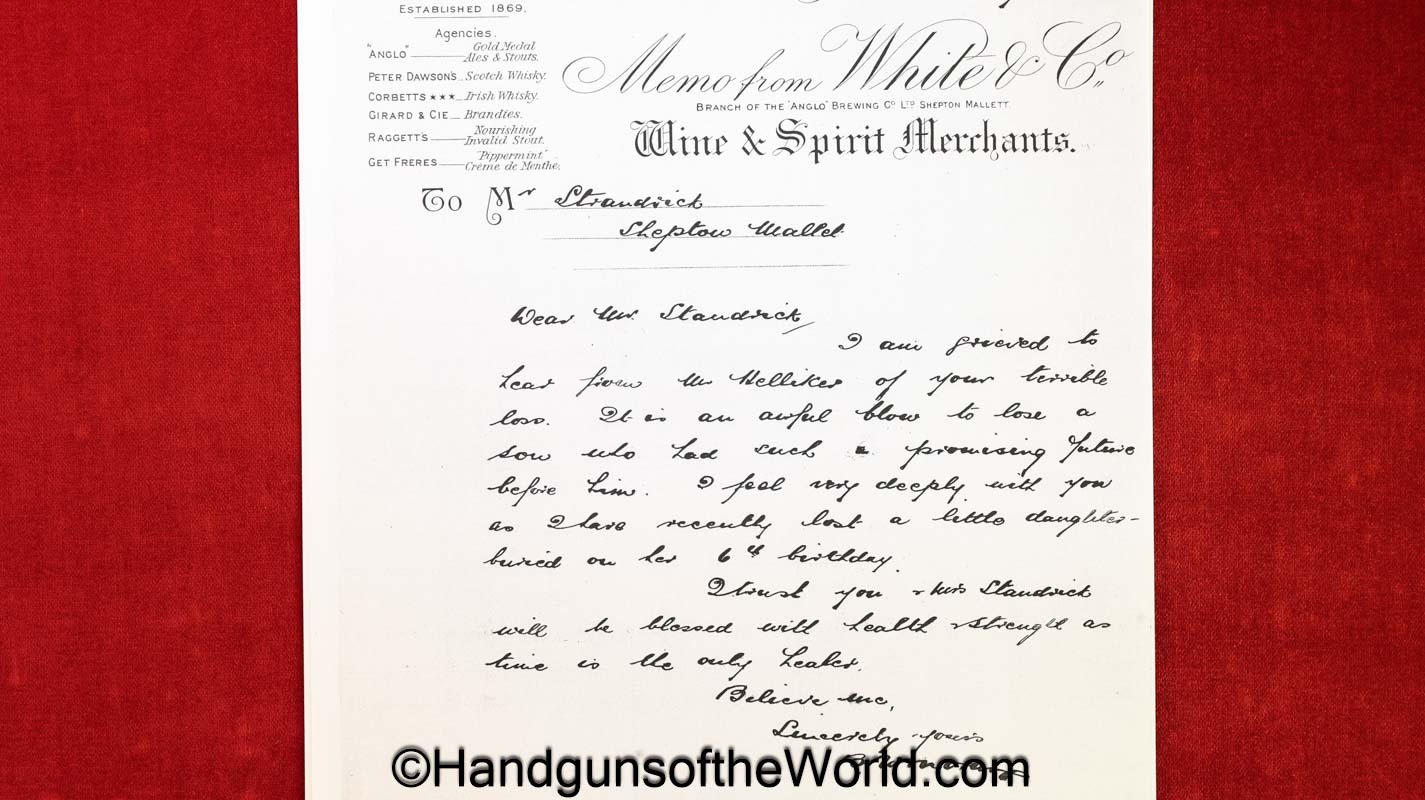 ESTABLISHED 1869.
Agencies.
"ANGLO" Gold Medal Ales & Stouts.
PETER DAWSON'S Scotch Whisky.
CORBETTS ★★★ Irish Whisky.
GIRARD & CIE Brandies.
RAGGETT'S Nourishing Invalid Stout.
GET FRERES "Pippermint" Crème de Menthe.
Memo from White & Co.,
BRANCH OF THE "ANGLO" BREWING Co LTD SHEPTON MALLETT.
Wine & Spirit Merchants.
To Mr Strandrick
Shepton Mallet.
Dear Mr. Standrick,
I am grieved to
hear from Mr Helliker of your terrible
loss. It is an awful blow to lose a
son who had such a promising future
before him. I feel very deeply with you
as I have recently lost a little daughter -
buried on her 6th birthday.
I trust you & Mrs Standrick
will be blessed with health & strength as
time is the only healer.
Believe me,
Sincerely yours
©HandgunsoftheWorld.com